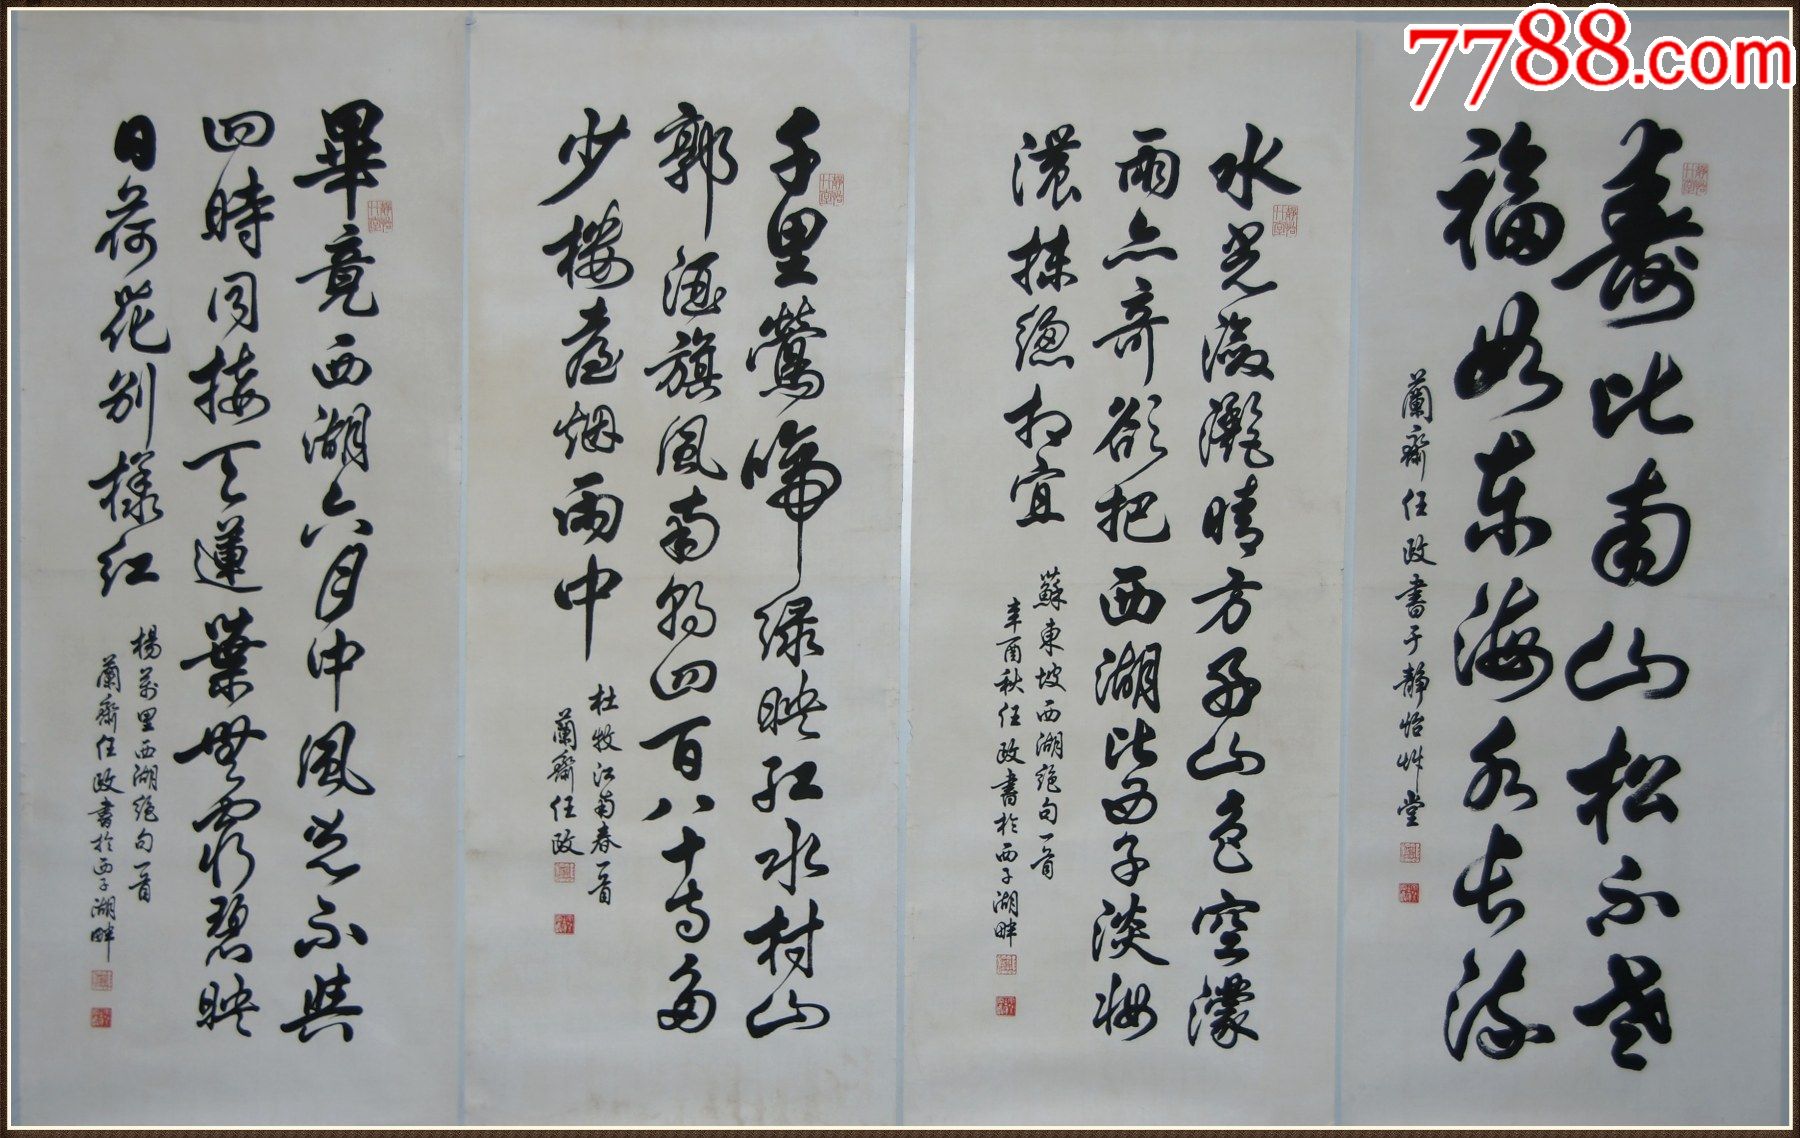 7788.com
壽比南山松不老
福如東海水長流
蘭齋任政書于靜怡艸堂
水光瀲灧晴方好山色空濛
雨亦奇欲把西湖比西子淡妝
濃抹總相宜
蘇東坡西湖絕句一首
辛酉秋任政書於西子湖畔
千里鶯啼緑映紅水村山
郭酒旗風南朝四百八十寺多
少樓臺烟雨中
杜牧江南春一首
蘭齋任政
畢竟西湖六月中風光不與
四時同接天蓮葉無窮碧映
日荷花別樣紅
楊萬里西湖絕句一首
蘭齋任政書於西子湖畔